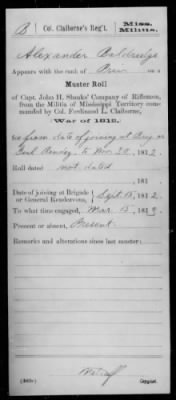 B | Col. Claiborne's Reg't. | Miss. Militia.
Alexander Baldridge
Appears with the rank of Priv on a
Muster Roll
of Capt. John H. Shanks' Company of Riflemen,
from the Militia of Mississippi Territory com-
manded by Col. Ferdinand L. Claiborne,
War of 1812.
for from date of joining at Brig. or
Genl Rendezv. to Nov. 30, 1812
Roll dated not dated
, 181
Date of joining at Brigade
or General Rendezvous, Sept. 15, 1812.
To what time engaged, Mar. 15, 1813
Present or absent, Present
Remarks and alterations since last muster:
Copyist.